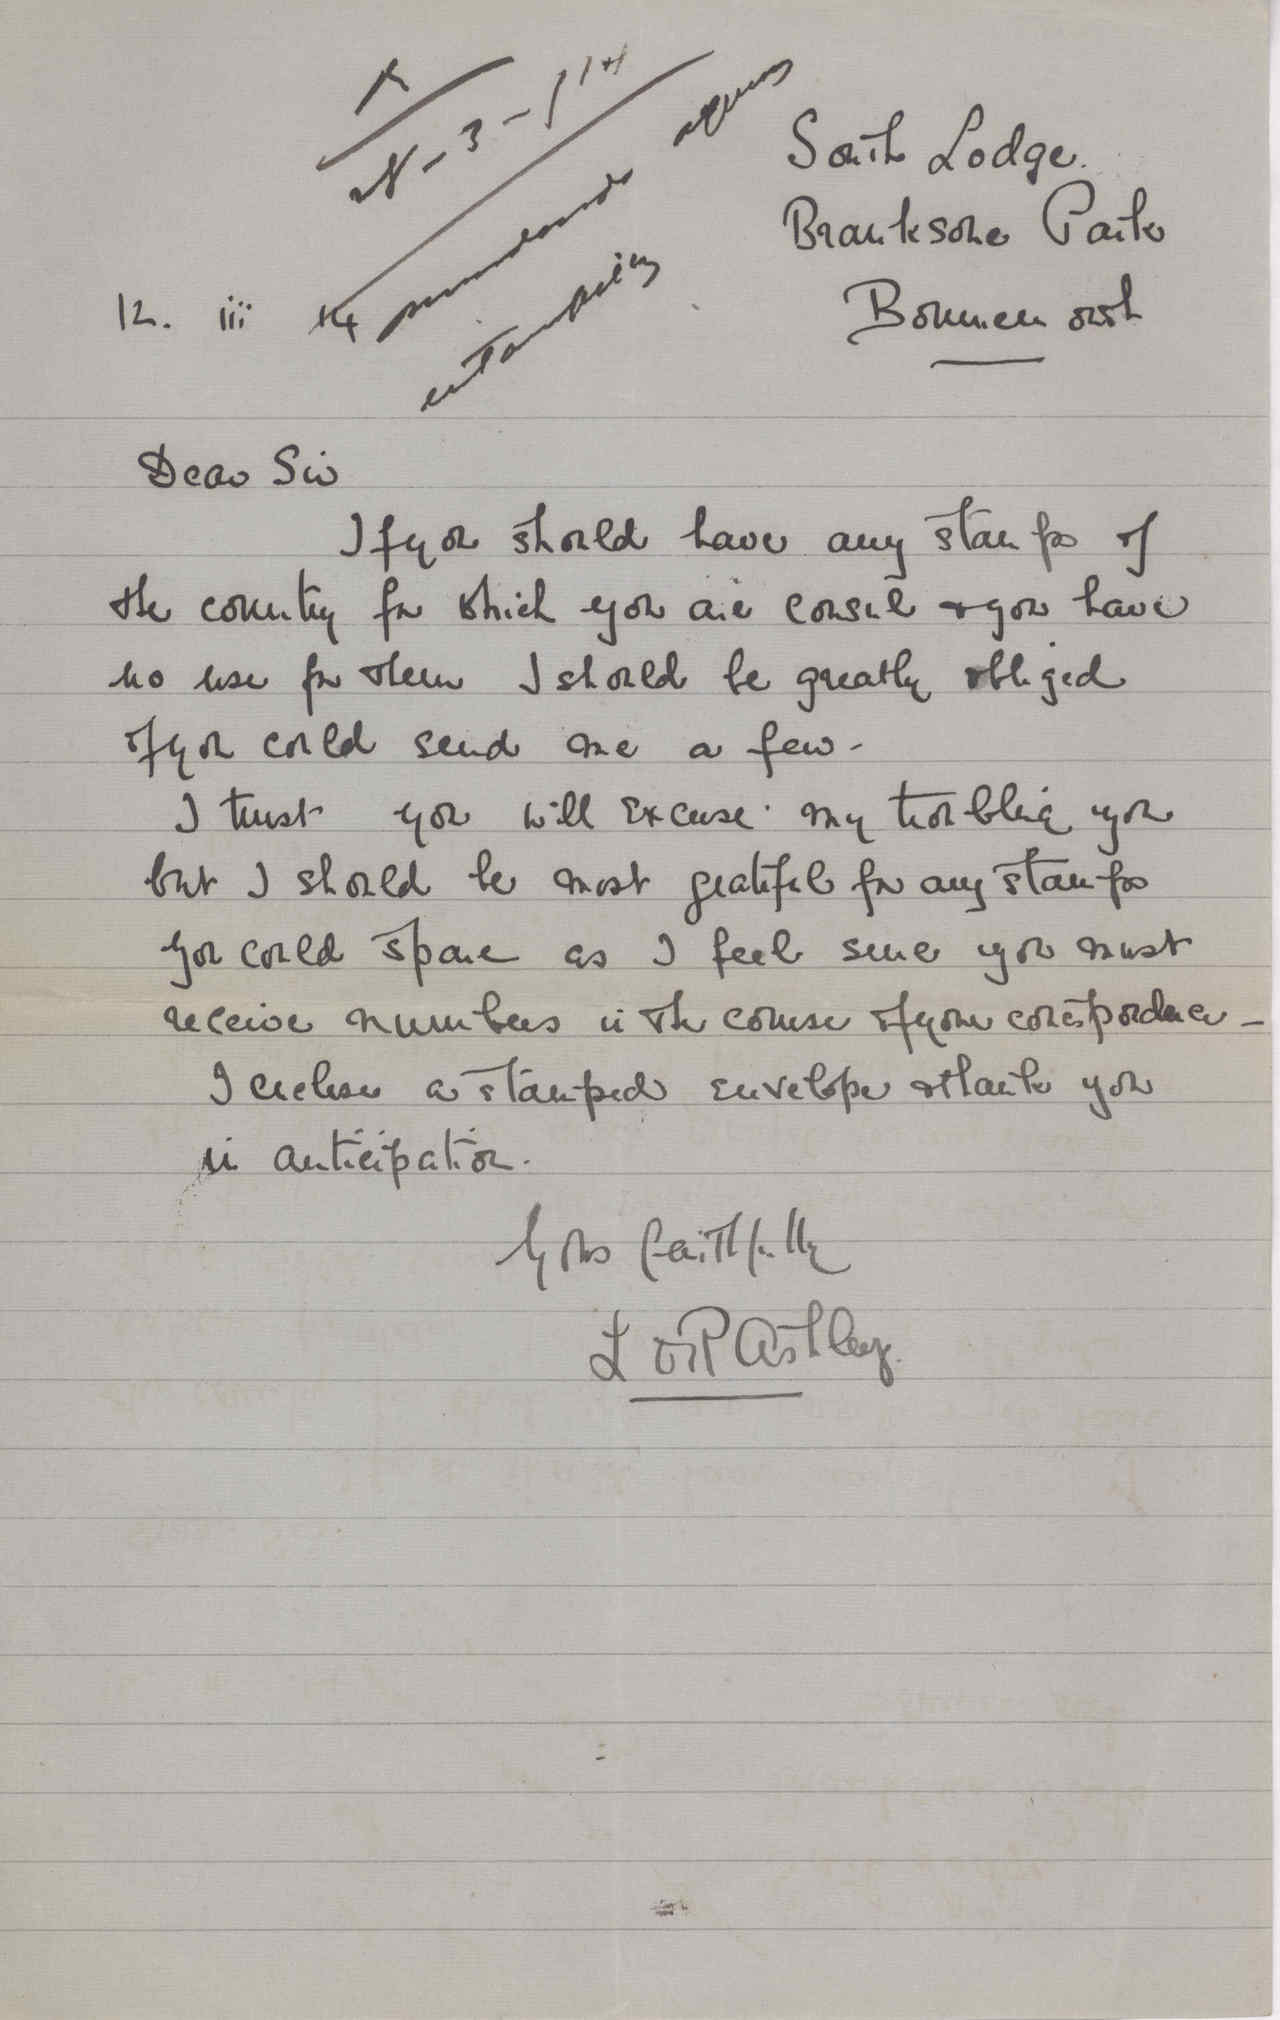 South Lodge.
Branksome Park
Bournemouth
12. iii 14
Dear Sir
If you should have any stamps of
the country for which you are consul & you have
no use for them I should be greatly obliged
if you could send me a few -
I trust you will excuse my troubling you
but I should be most grateful for any stamps
you could spare as I feel sure you must
receive numbers in the course of your correspondence -
I enclose a stamped envelope & thank you
in anticipation.
Yours faithfully
Astley.